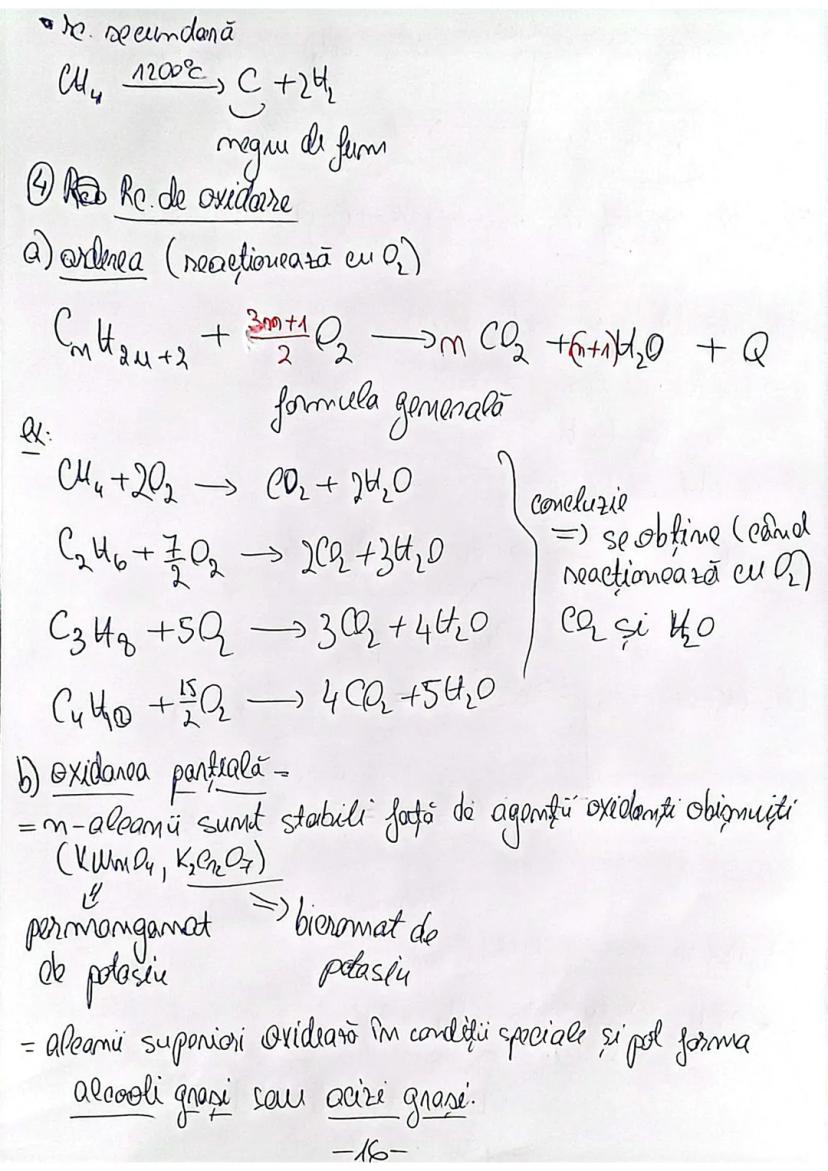 • rc. secundară
CH₄ —1200°C→ C + 2H₂
negru de fum
④ Rc. de oxidare
a) arderea (reacționează cu O₂)
CₙH₂ₙ₊₂ + (3n+1)/2 O₂ → n CO₂ + (n+1)H₂O + Q
formula generală
ex:
CH₄ + 2O₂ → CO₂ + 2H₂O
C₂H₆ + 7/2 O₂ → 2CO₂ + 3H₂O
C₃H₈ + 5O₂ → 3CO₂ + 4H₂O
C₄H₁₀ + 15/2 O₂ → 4CO₂ + 5H₂O
concluzie
=> se obține (când
reacționează cu O₂)
CO₂ și H₂O
b) oxidarea parțială -
= n-alcanii sunt stabili față de agenții oxidanți obișnuiți
(KMnO₄, K₂Cr₂O₇)
permanganat
de potasiu
=> bicromat de
potasiu
= alcanii superiori oxidează în condiții speciale și pot forma
alcooli grași sau acizi grași.
-16-